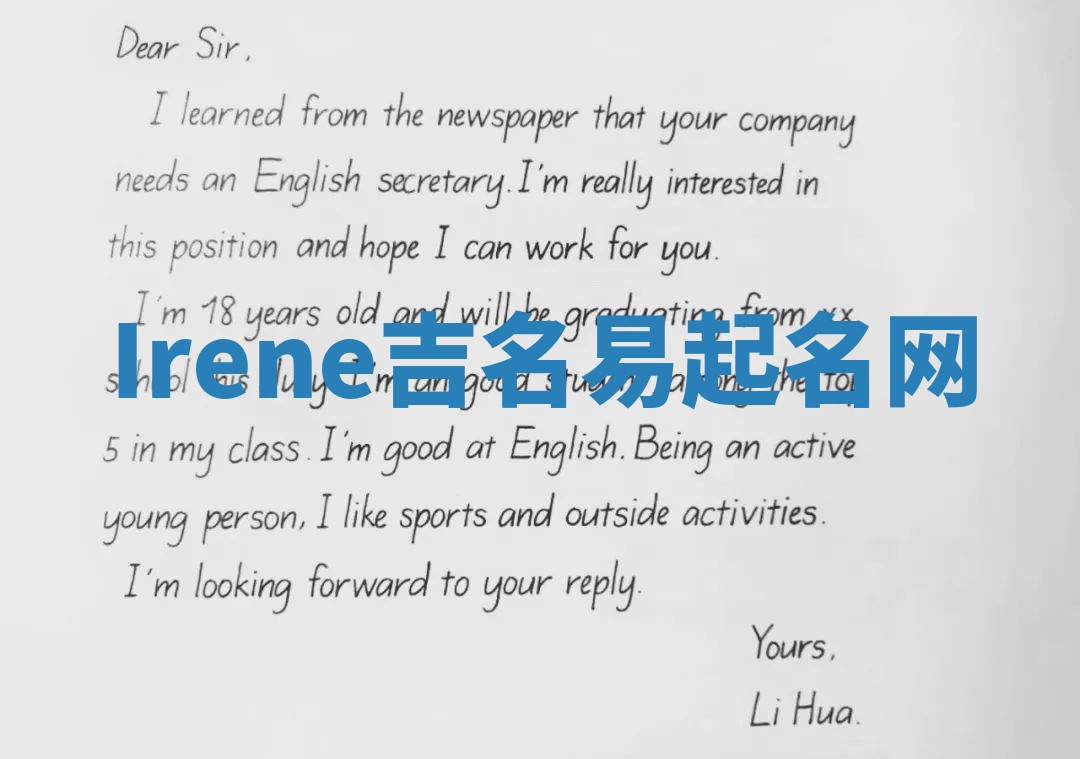 Dear Sir,
I learned from the newspaper that your company
needs an English secretary. I'm really interested in
this position and hope I can work for you.
I'm 18 years old and will be graduating from xx
Irene吉名易起名网
school this July. I'm an good student among the top
5 in my class. I'm good at English. Being an active
young person, I like sports and outside activities.
I'm looking forward to your reply.
Yours,
Li Hua.